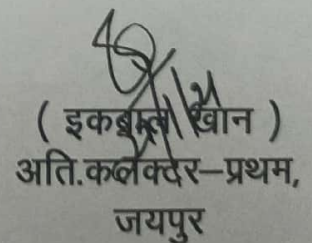 ( इकबाल खान )
अति.कलेक्टर–प्रथम,
जयपुर